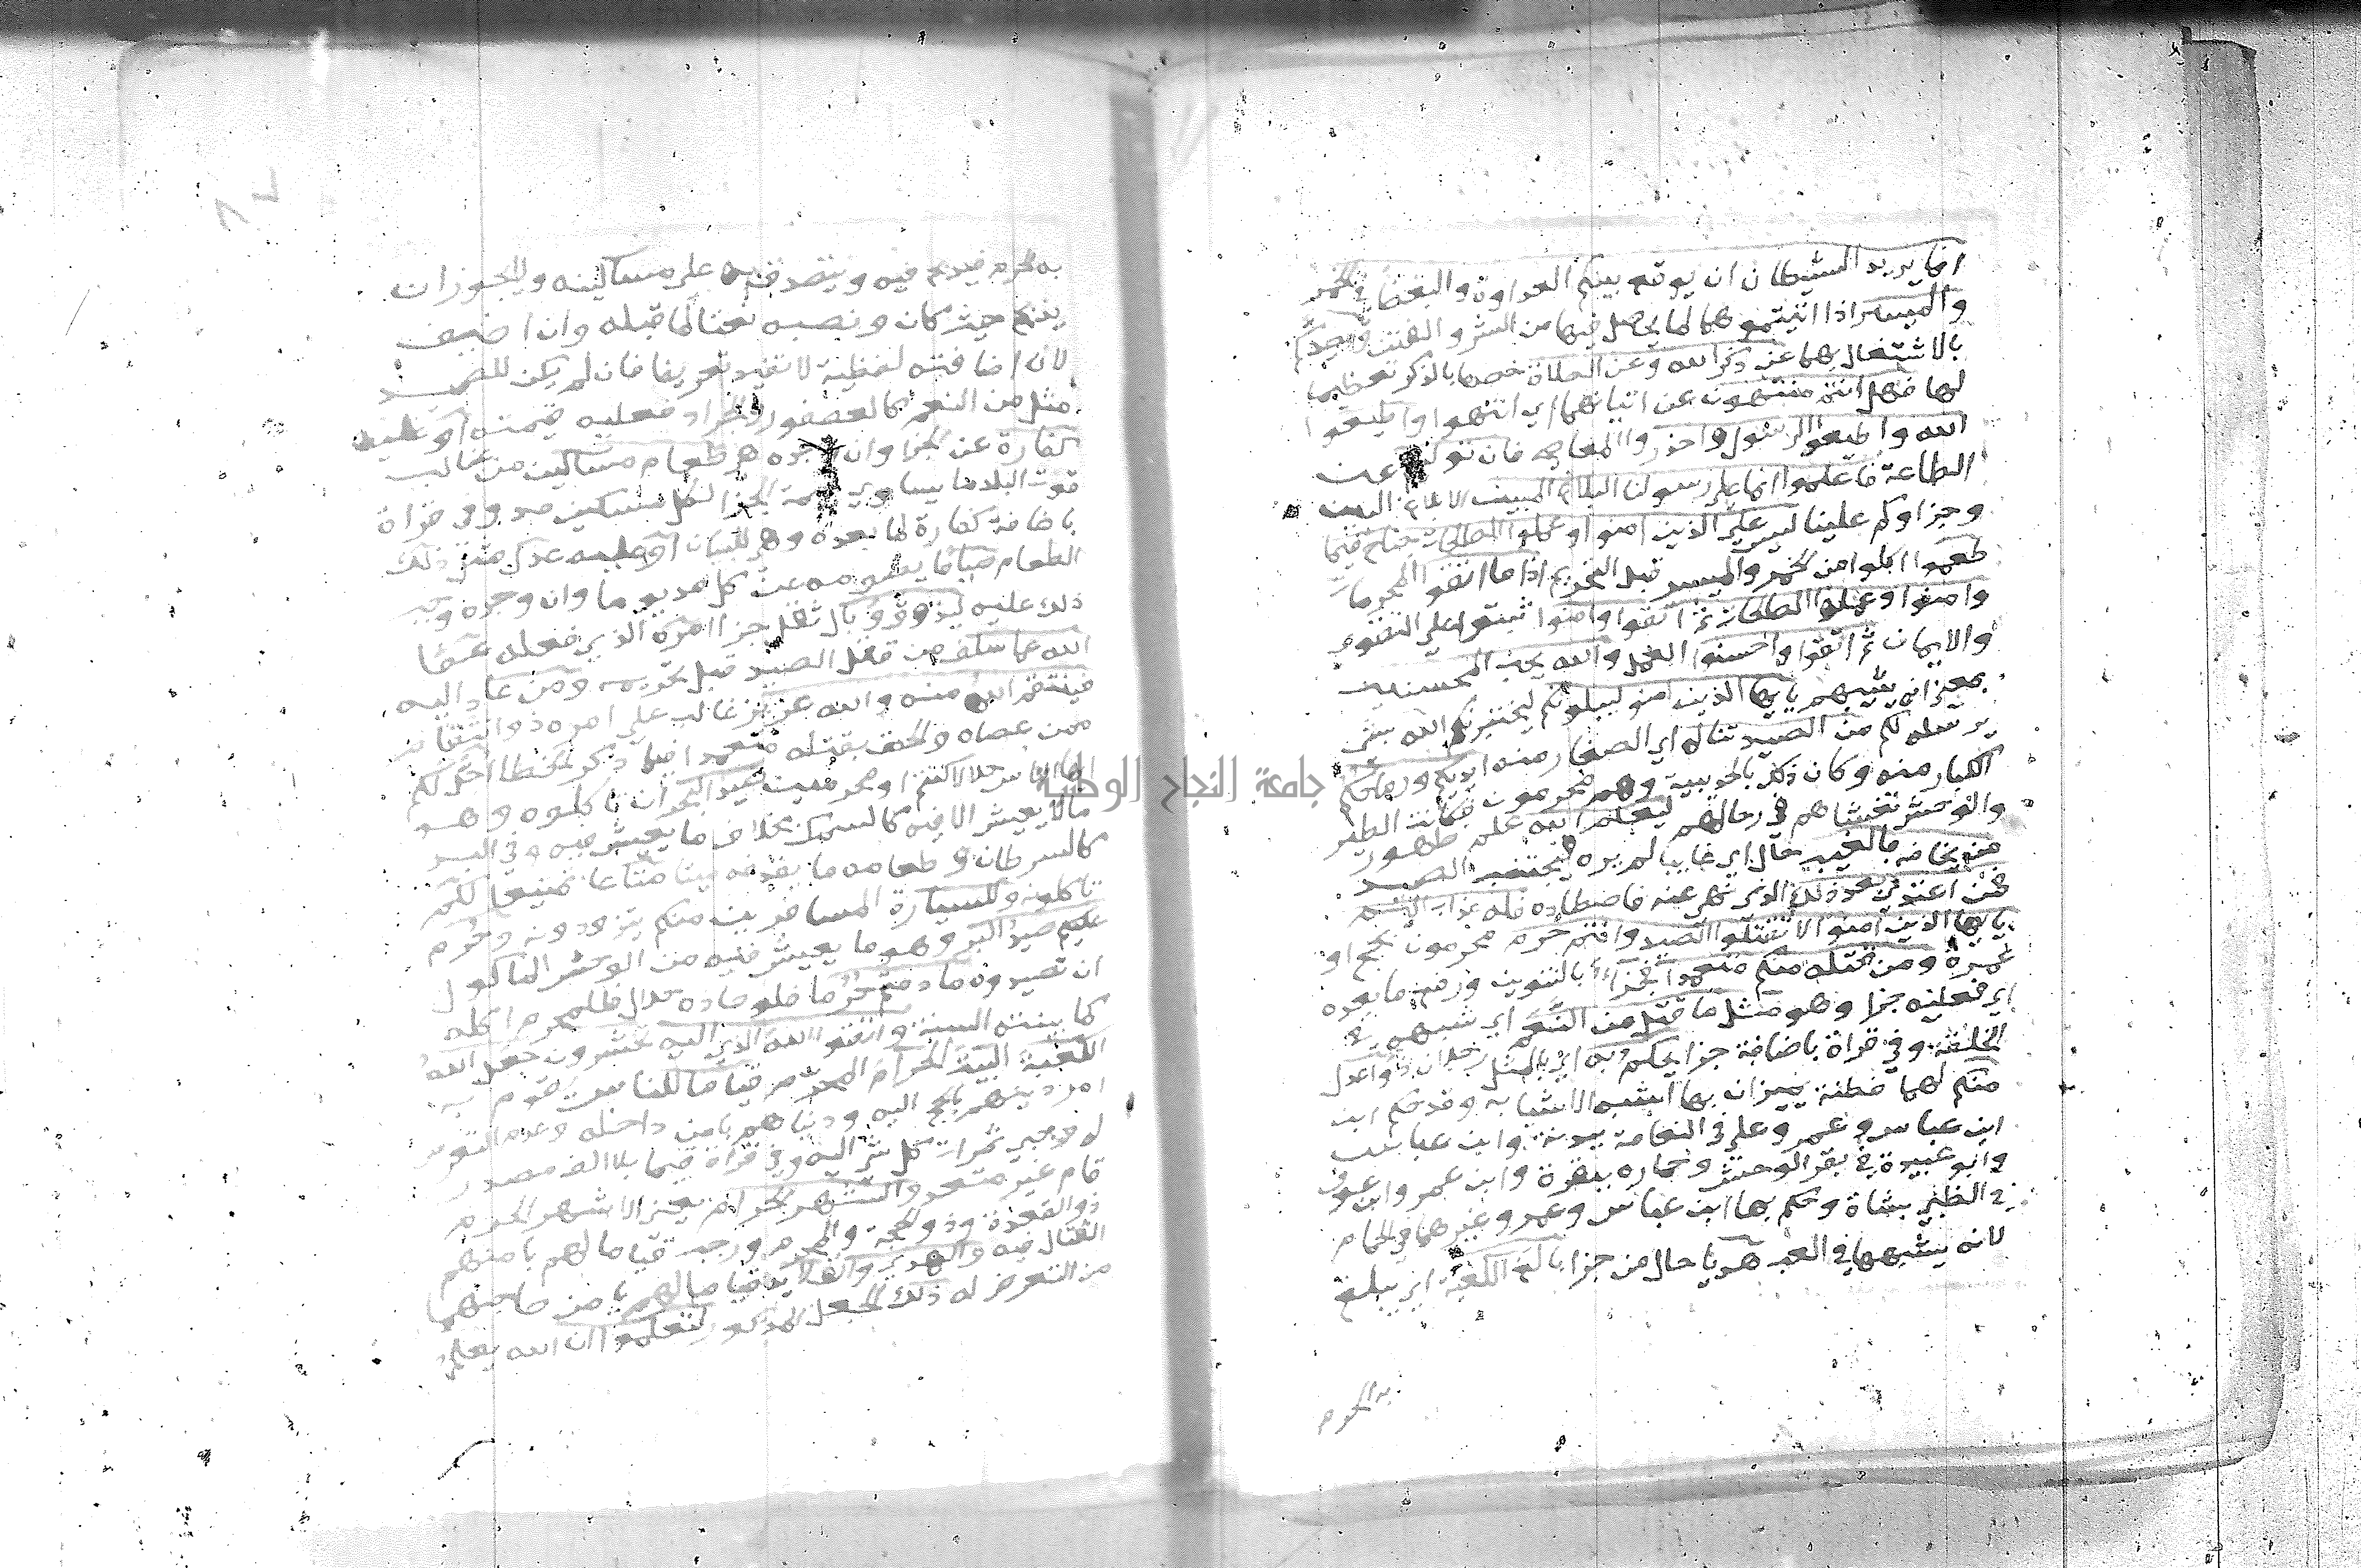 انما يريد الشيطان ان يوقع بينكم العداوة والبغضا في الخمر
والميسر اذا اتيتموهما لما يحصل فيهما من الشر والفتن ويصدكم
بالاشتغال بهما عن ذكر الله وعن الصلاة خصها بالذكر تعظيما
لها فهل انتم منتهون عن اتيانهما اي انتهوا واطيعوا
الله واطيعوا الرسول واحذروا المعاصي فان توليتم عن
الطاعة فاعلموا انما على رسولنا البلاغ المبين الابلاغ البين
وجزاوكم علينا ليس على الذين امنوا وعملوا الصالحات جناح فيما
طعموا اكلوا من الخمر والميسر قبل التحريم اذا ما اتقوا المحرمات
وامنوا وعملوا الصالحات ثم اتقوا وامنوا ثبتوا على التقوى
والايمان ثم اتقوا واحسنوا العمل والله يحب المحسنين
بمعنى انه يثيبهم يايها الذين امنو ليبلونكم ليختبرنكم الله بشي
يرسله لكم من الصيد تناله اي الصغار منه ايديكم ورماحكم
الكبار منه وكان ذلك بالحديبية وهم محرمون فكانت الطير
والوحش تغشاهم في رحالهم ليعلم الله علم ظهور
من يخافه بالغيب حال اي غايبا لم يره فيجتنب الصيد
فمن اعتدى بعد ذلك الذي نهى عنه فاصطاده فله عذاب اليم
يايها الذين امنو الا تقتلوا الصيد وانتم حرم محرمون بحج او
عمرة ومن قتله منكم متعمدا فجزاء بالتنوين ورفع ما بعده
اي فعليه جزا وهو مثل ما قتل من النعم اي شبهه في
الخلقة وفي قراة باضافة جزا يحكم به اي بالمثل رجلان ذوا عدل
منكم لهما فطنة يميزان بها اشبه الاشيا به وقد حكم ابن
ابن عباس وعمر وعلي في النعامة ببدنة وابن عباس
وابو عبيدة في بقر الوحش وحماره ببقرة وابن عمر وابن عوف
في الظبي بشاة وحكم بها ابن عباس وعمر وغيرهما في الحمام
لانه يشبهها في العب هديا حال من جزا بالغ الكعبة اي يبلغ
به الحرم
به الحرم فيذبح فيه ويتصدق به على مساكينه ولا يجوز ان
يذبح حيث كان ونصبه نعتا لما قبله وان اضيف
لان اضافته لفظية لا تفيد تعريفا فان لم يكن للصيد
مثل من النعم كالعصفور والجراد فعليه قيمته او عليه
كفارة عن الجزا وان وجده هي طعام مساكين من غالب
قوت البلد ما يساوي قيمة الجزا لكل مسكين مد وفي قراة
باضافة كفارة لما بعده وهي للبيان او عليه عدل مثل ذلك
الطعام صياما يصومه عن كل مد يوما وان وجده وجب
ذلك عليه ليذوق وبال ثقل جزا امره الذي فعله عفا
الله عما سلف من قتل الصيد قبل تحريمه ومن عاد اليه
فينتقم الله منه والله عزيز غالب على امره ذو انتقام
ممن عصاه والحق بقتله متعمدا فيما ذكر الخطا احل لكم
ايها الناس حلالا كنتم او محرمين صيد البحر ان تاكلوه وهو
مالا يعيش الا فيه كالسمك بخلاف ما يعيش فيه وفي البر
كالسرطان وطعامه ما يقذفه ميتا متاعا تمتيعا لكم
تاكلونه وللسيارة المسافرين منكم يتزودونه وحرم
عليكم صيد البر وهو ما يعيش فيه من الوحش الماكول
ان تصيدوه ما دمتم حرما فلو صاده حلال فللمحرم اكله
كما بينته السنة واتقوا الله الذي اليه تحشرون جعل الله
الكعبة البيت الحرام المحرم قياما للناس يقوم به
امر دينهم بالحج اليه ودنياهم بامن داخله وعدم التعرض
له وجبي ثمرات كل شي اليه وفي قراة قيما بلا الف مصدر
قام غير متعد والشهر الحرام بمعنى الاشهر الحرم
ذو القعدة وذو الحجة والمحرم ورجب قياما لهم بامنهم
القتال فيه والهدي والقلايد قياما لهم بامن صاحبهما
من التعرض له ذلك الجعل المذكور لتعلموا ان الله يعلم
جامعة النجاح الوطنية